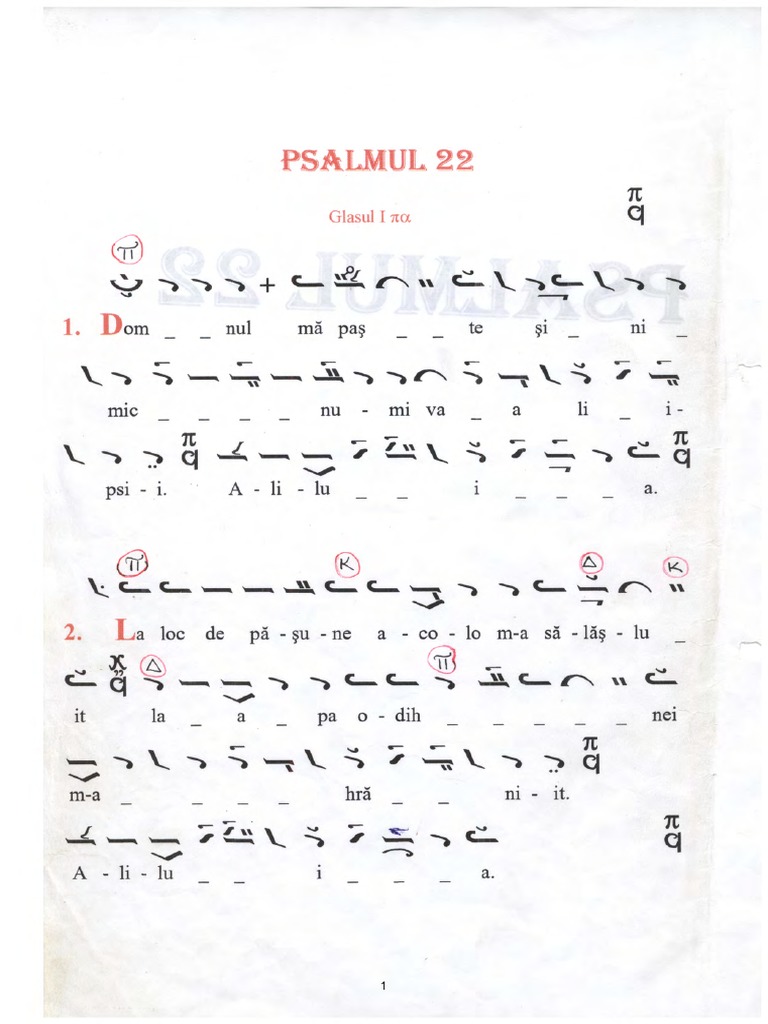 PSALMUL 22
π
q
Glasul I πα
π
1. Dom _ _ nul mă paş _ _ te şi _ ni _
mic _ _ _ _ nu - mi va _ a li _ i-
π
q
π
q
psi - i. A - li - lu _ _ i _ _ _ a.
π K Δ K
2. La loc de pă - şu - ne a - co - lo m-a să - lăş - lu _
q
Δ π
it la _ a _ pa o - dih _ _ _ _ _ nei
π
q
m-a _ _ _ _ hră _ _ ni - it.
π
q
A - li - lu _ _ i _ _ _ a.
1